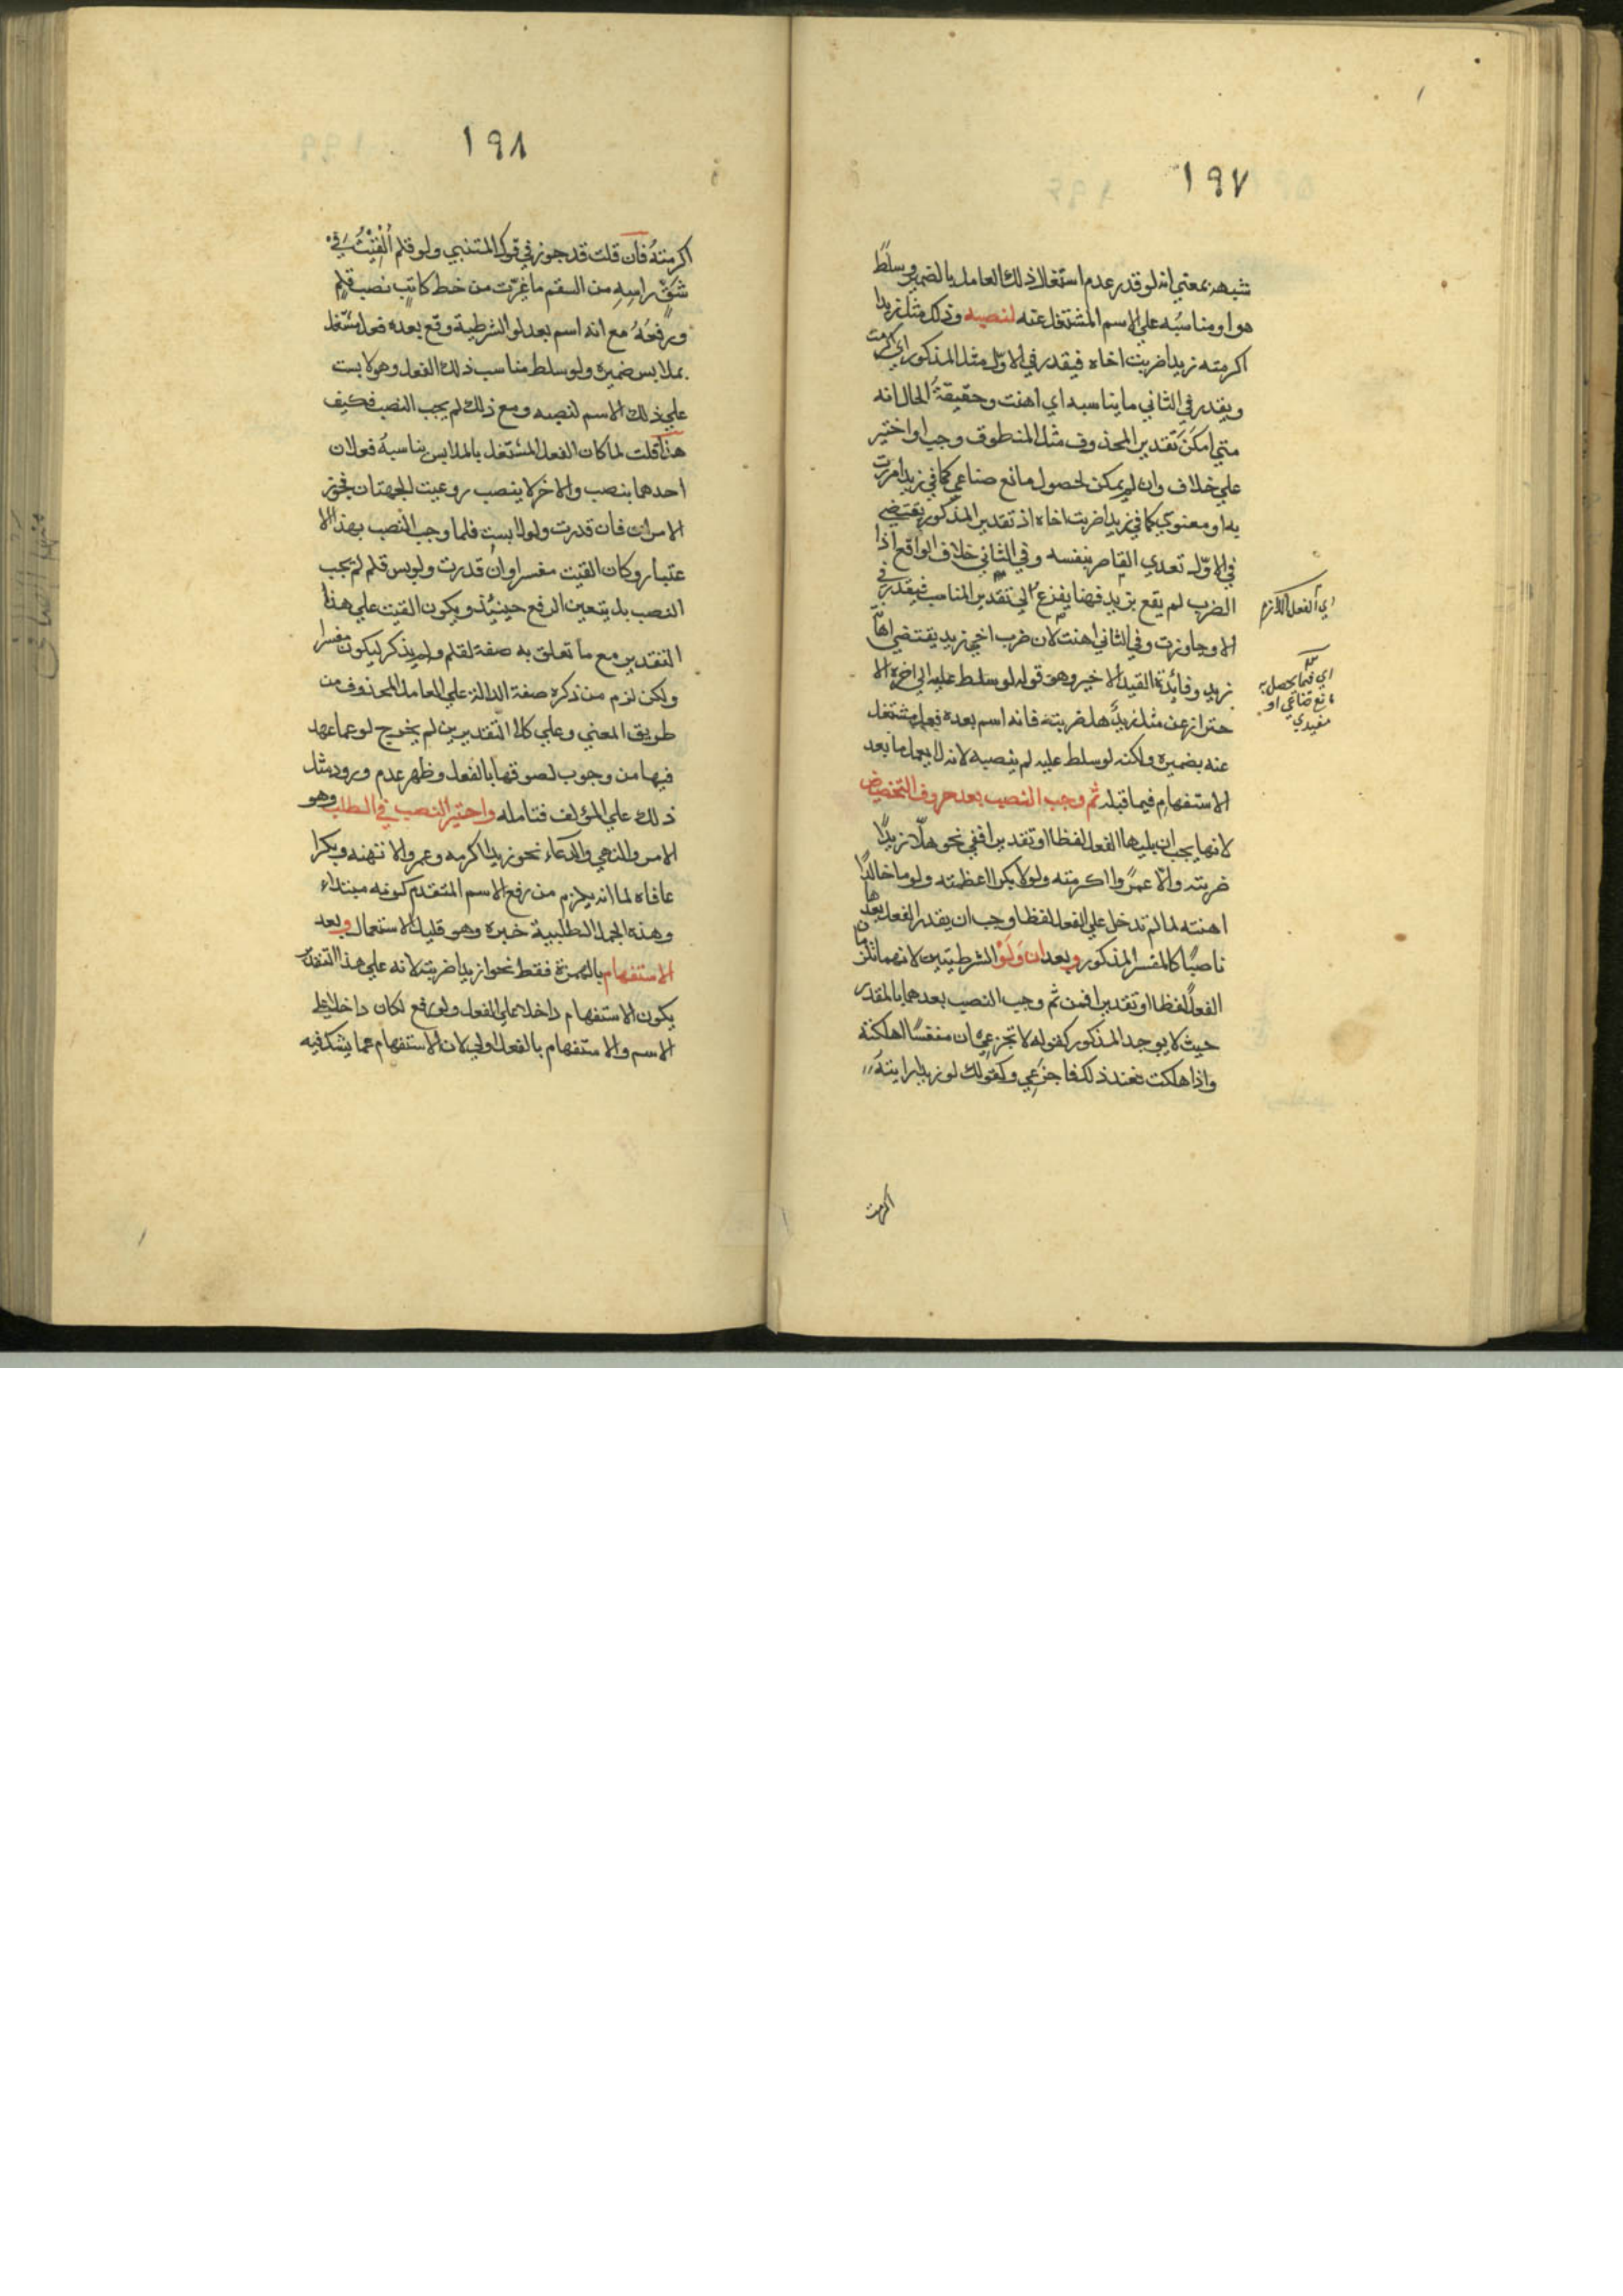 ١٩٧
شبهه بمعني انه لو قدر عدم اشتغال ذلك العامل بالضمير وسلط
هو او مناسبُه علي الاسم المشتغل عنه لنصبه وذلك مثل زيدا
اكرمته زيدا ضربت اخاه فيقدر في الاوّل مثل المذكور اي اكرمت
ويقدر في الثاني ما يناسبه اي اهنت وحقيقةُ الحال انه
متي امكنَ تقدير المحذوف مثل المنطوق وجب او اختير
علي خلاف وان لم يمكن لحصول مانع صناعي كما في زيدا مررت
به او معنوي كما في زيدا ضربت اخاه اذ تقدير المذكور يقتضي
في الاوّل تعدي القاصر بنفسه وفي الثاني خلاف الواقع اذا
الضرب لم يقع بزيد فهنا يفزع الي تقدير المناسب فيقدر في
الاو جاوزت وفي الثاني اهنت لان ضرب اخي زيد يقتضي اهانة
زيد وفائدة القيد الاخير وهو قوله لو سلط عليه الي اخره الا
حتراز عن مثل زيدٌ هل ضربته فانه اسم بعده فعل مشتغل
عنه بضميره ولكنه لو سلط عليه لم ينصبه لانه لا يعمل ما بعد
الاستفهام فيما قبله ثم وجب النصب بعد حروف التخضيض
لانها يجب ان يليها الفعل لفظا او تقديرا ففي نحو هلّا زيدًا
ضربته والّا عمرًوا اكرمته ولولا بكرا اعظمته ولوما خالدًا
اهنته لما لم تدخل علي الفعل لفظا وجب ان يقدر الفعل بعدها
ناصبًا كالمفسر المذكور وبعد ان ولَوْ الشرطيتين لانهما تلزمان
الفعل لفظا او تقديرا فمن ثم وجب النصب بعدهما بالمقدر
حيث لا يوجد المذكور كقوله لا تجزعي ان منفسًا اهلكته
واذا هلكت فعند ذلك فاجزعي وكقولك لو زيدا رايتهُ
اي الفعل اللازم
اي فيما يحصل به
مانع صناعي او
اكرمت
١٩٨
اكرمتهُ فان قلت قد جوز في قول المتنبي ولو قلم اُلْقِيْتُ في
شقِّ راسِه من السقم ما غيّرت من خط كاتبٍ نصب قلمٍ
ورفعُهُ مع انه اسم بعد لو الشرطية وقع بعده فعل مشتغل
بملابس ضميره ولو سلط مناسب ذلك الفعل وهو لابست
علي ذلك الاسم لنصبه ومع ذلك لم يجب النصب فكيف
هذا قلت لما كان الفعل المشتغل بالملابس يناسبهُ فعلان
احدهما ينصب والاخر لا ينصب روعيت الجهتان فجوز
الامران فان قدرت ولو لابست قلما وجب النصب بهذا الا
عتبار وكان القيت مفسرا وان قدرت ولو بس قلم لم يجب
النصب بل يتعين الرفع حينيئذ ويكون القيت علي هذا
التقدير مع ما تعلق به صفة لقلم ولم يذكر ليكون مفسرا
ولكن لزم من ذكره صفة الدالة علي العامل المحذوف من
طريق المعني وعلي كلا التقديرين لم يخرج لو عما عهد
فيها من وجوب لصوقها بالفعل وظهر عدم ورود مثل
ذلك علي المؤلف فتامله واختير النصب في الطلب وهو
الامر والنهي والدعاء نحو زيدا اكرمه وعمروا لا تهنه وبكرا
عافاه لما انه يلزم من رفع الاسم المتقدم كونه مبتداء
وهذه الجمل الطلبية خبره وهو قليل الاستعمال وبعد
الاستفهام بالهمزة فقط نحو ازيدا ضربته لانه علي هذا التقدير
يكون الاستفهام داخلا علي الفعل ولو رفع لكان داخلا علي
الاسم والاستفهام بالفعل اولي لان الاستفهام عما يشك فيه